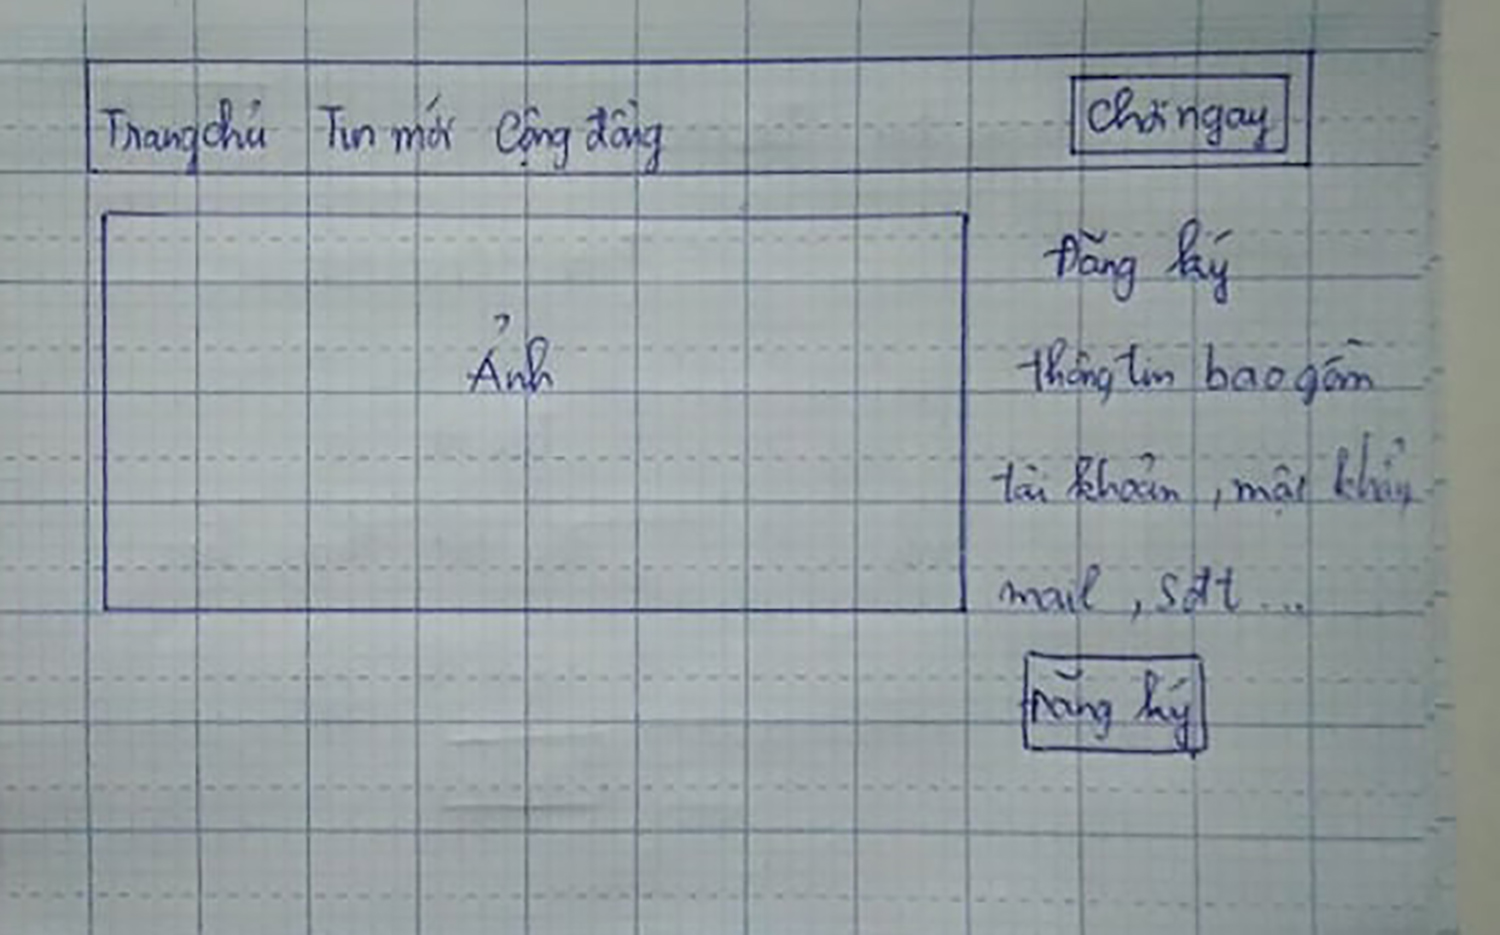 Trang chủ Tin mới Cộng đồng Chơi ngay
Ảnh
Đăng ký
thông tin bao gồm
tài khoản, mật khẩu
mail, sđt ...
Đăng ký